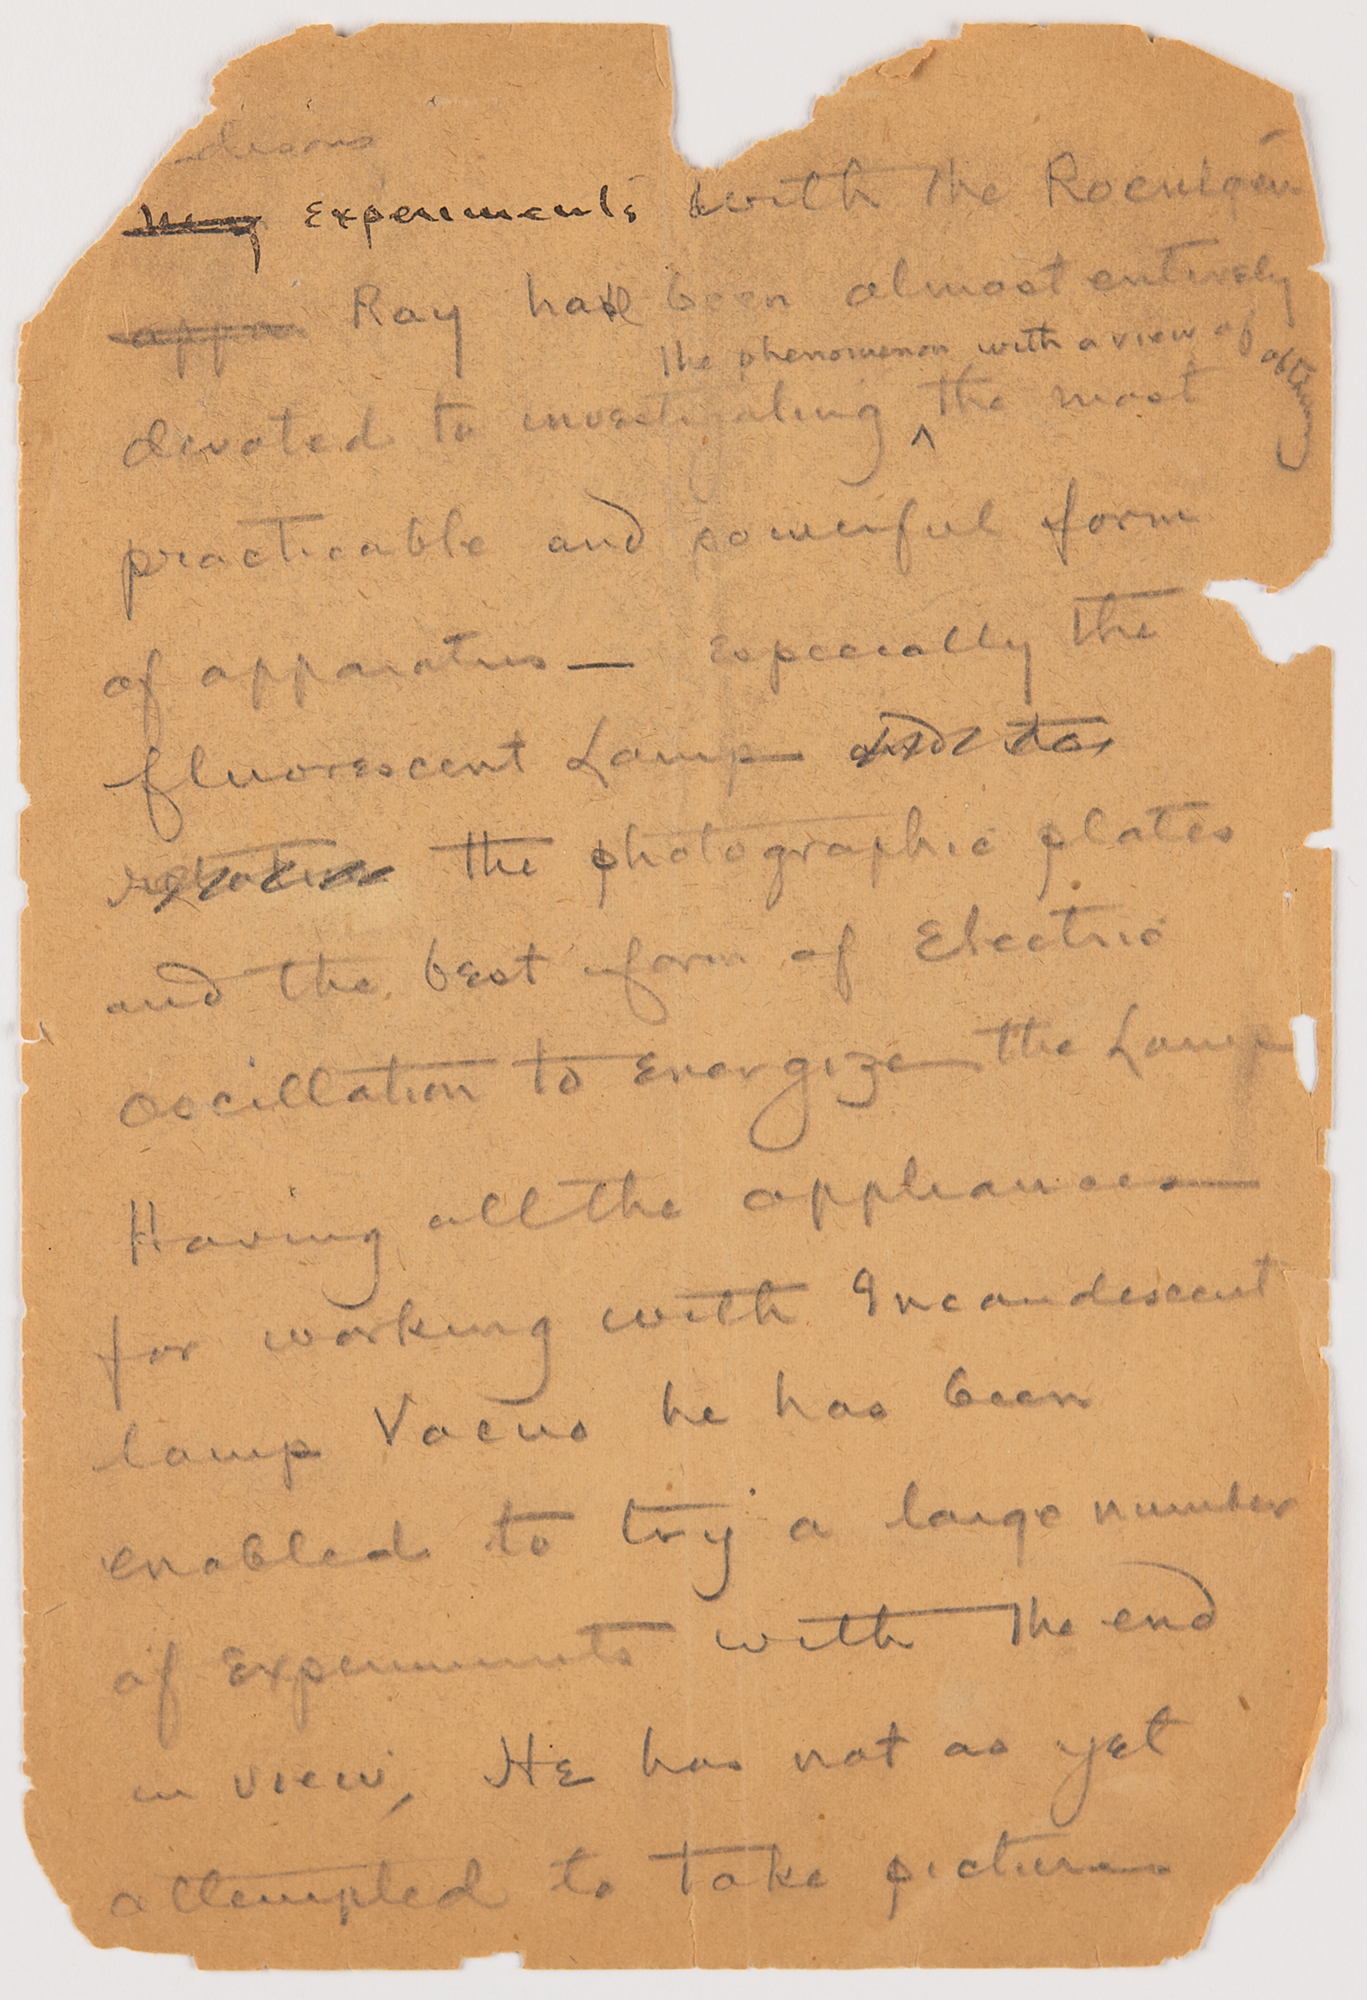 disons
My experiments with the Roentgen
appa Ray have been almost entirely
the phenomenon with a view of obtaining
devoted to investigating ^ the most
practicable and powerful form
of apparatus — Especially the
fluorescent Lamp and to
the photographic plates
and the best form of Electric
oscillation to Energize the Lamp
Having all the appliances
for working with Incandescent
lamp Vacuo he has been
enabled to try a large number
of Experiments with the end
in view, HE has not as yet
attempted to take pictures